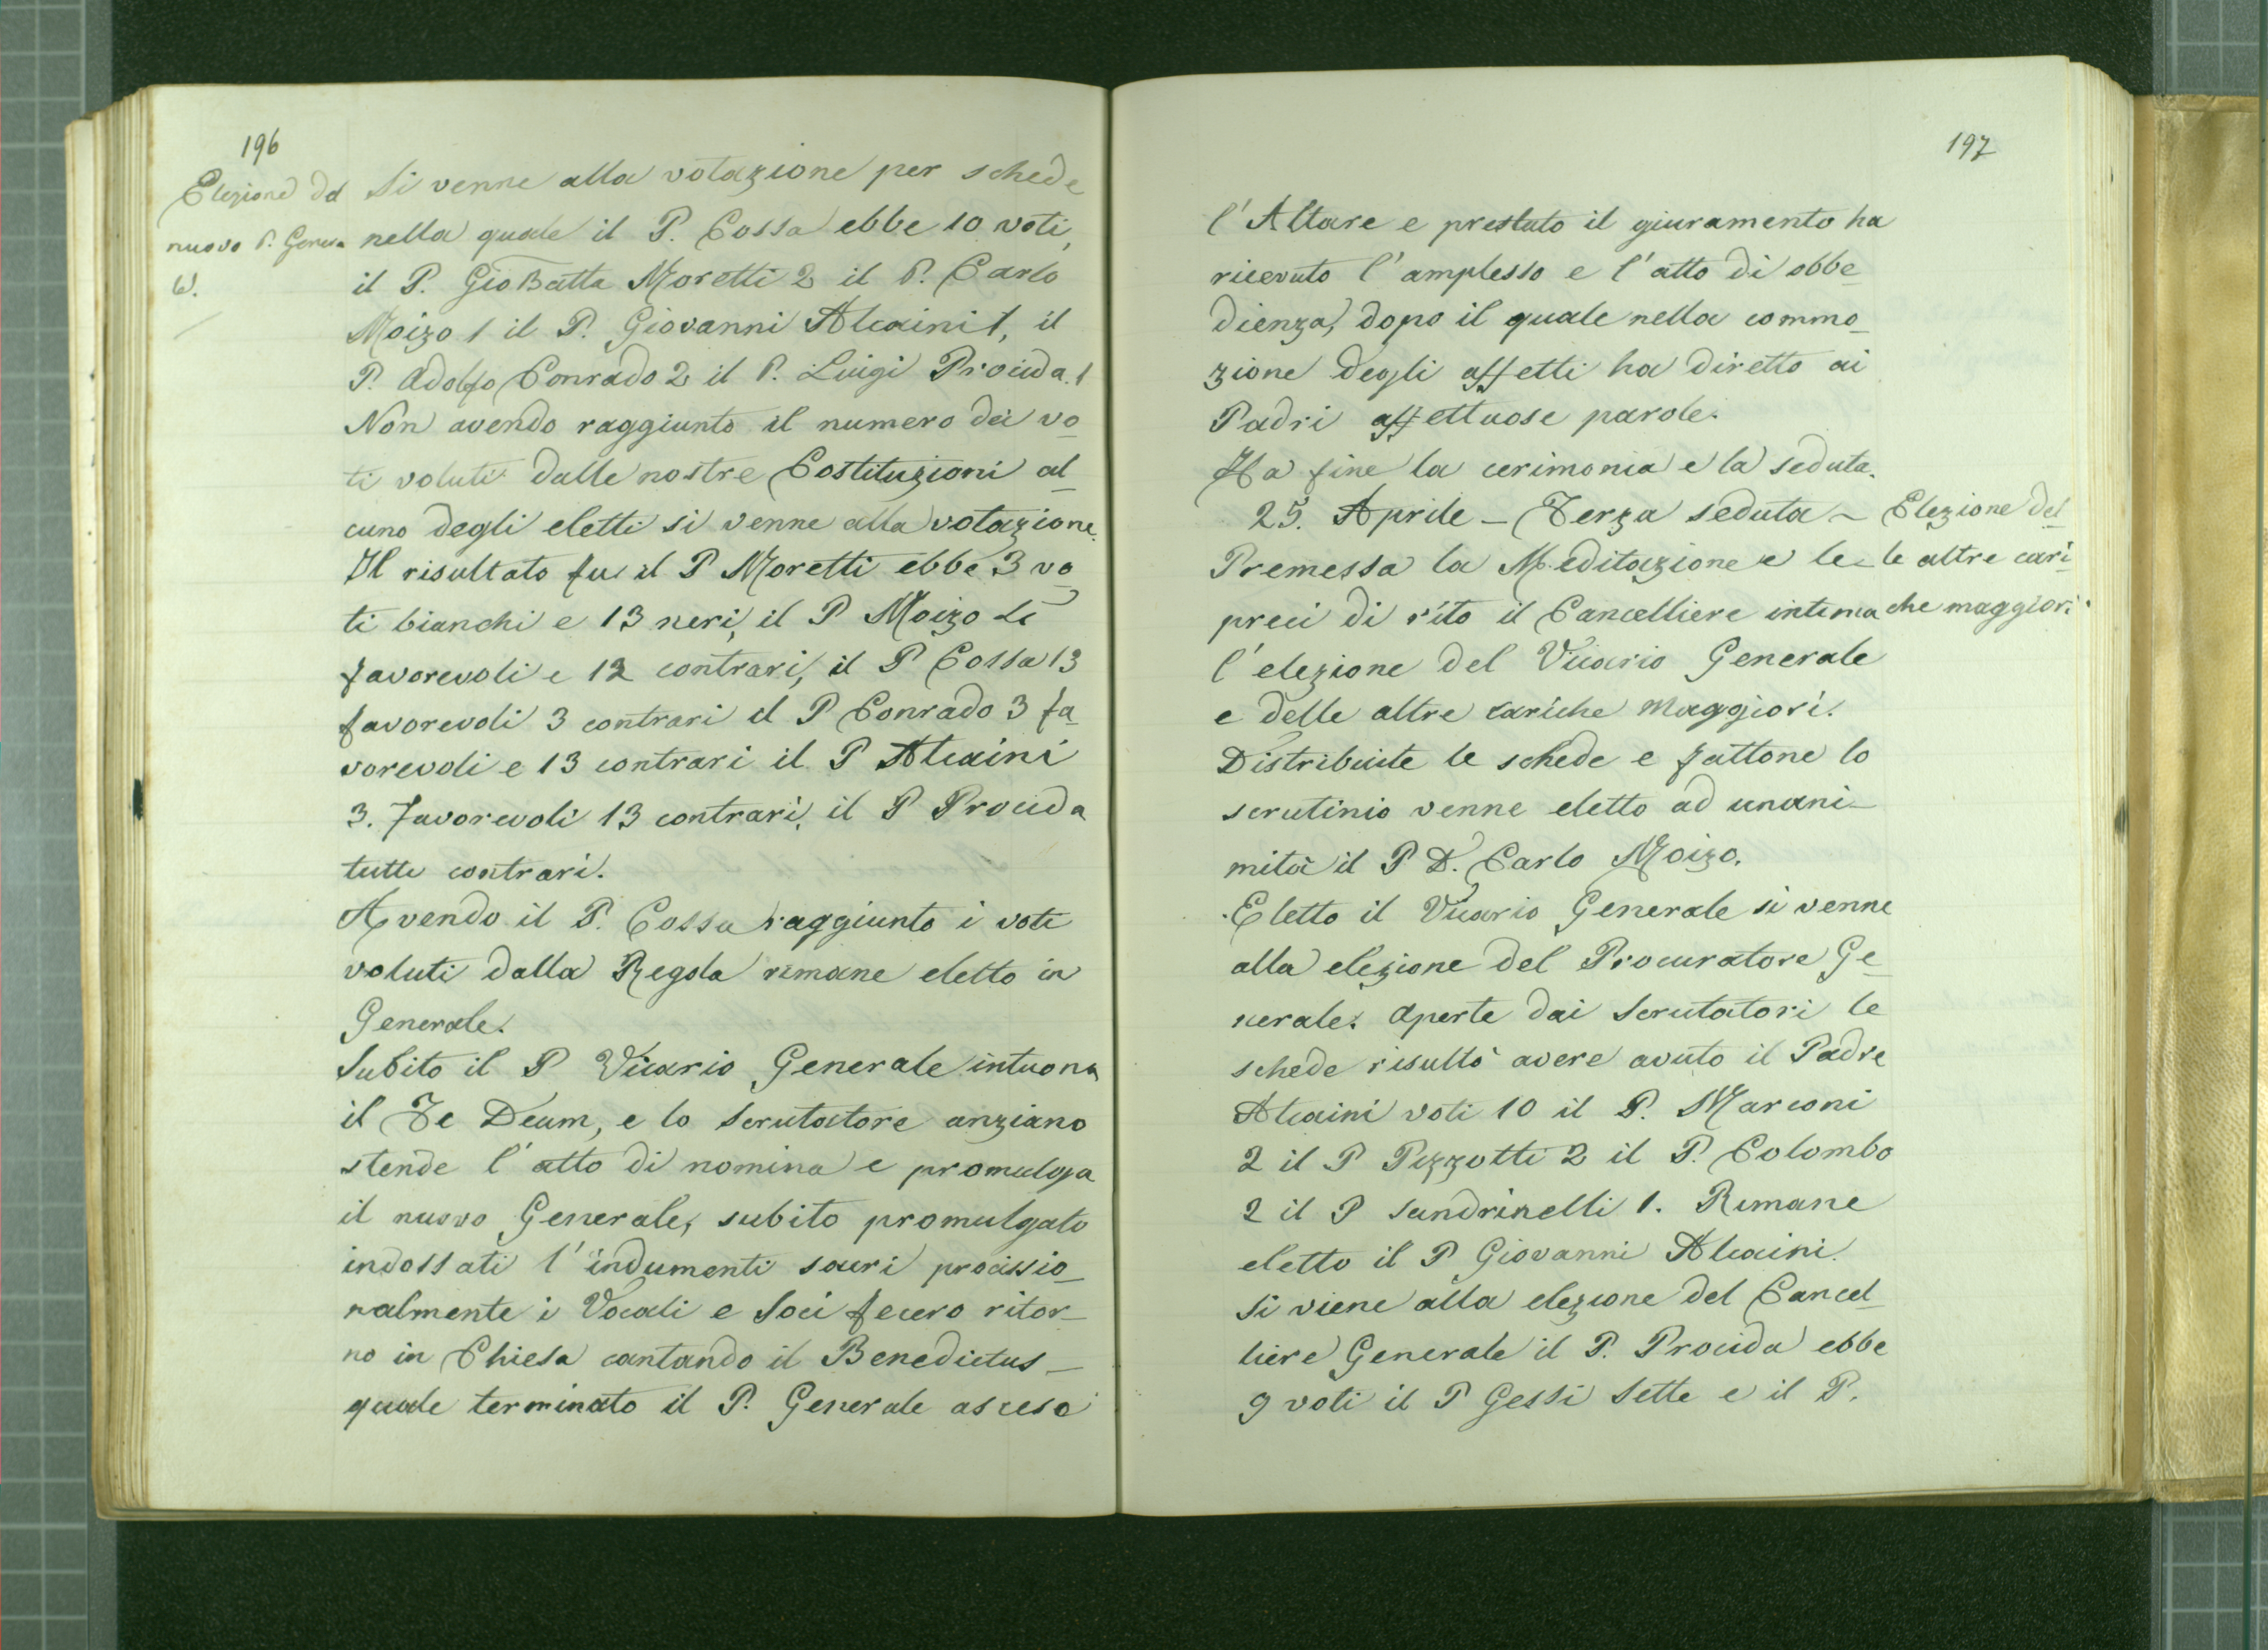 196
Elezione del
nuovo P. Genera
le.
Si venne alla votazione per schede
nella quale il P. Cossa ebbe 10 voti,
il P. GioBatta Moretti 2 il P. Carlo
Moizo 1 il P. Giovanni Alcaini 1, il
P. Adolfo Conrado 2 il P. Luigi Procida. 1
Non avendo raggiunto il numero dei vo_
ti voluti dalle nostre Costituzioni al_
cuno degli eletti si venne alla votazione.
Il risultato fu: il P Moretti ebbe 3 vo_
ti bianchi e 13 neri, il P Moizo
favorevoli e 12 contrari, il P Cossa 13
favorevoli 3 contrari il P Conrado 3 fa_
vorevoli e 13 contrari il P Alcaini
3. favorevoli 13 contrari, il P Procida
tutti contrari.
Avendo il P. Cossa raggiunto i voti
voluti dalla Regola rimane eletto in
Generale.
Subito il P Vicario Generale intuona
il Te Deum, e lo Scrutatore anziano
stende l'atto di nomina e promulga
il nuovo Generale, subito promulgato
indossati l'indumenti sacri processio_
nalmente i Vocali e Soci fecero ritor_
no in Chiesa cantando il Benedictus_
quale terminato il P. Generale asceso
197
l'Altare e prestato il giuramento ha
ricevuto l'amplesso e l'atto di obbe_
dienza, dopo il quale nella commo_
zione degli affetti ha diretto ai
Padri affettuose parole.
Ha fine la cerimonia e la seduta.
25. Aprile _ Terza seduta _
Elezione del_
le altre cari_
che maggiori.
Premessa la Meditazione e le_
preci di rito il Cancelliere intima
l'elezione del Vicario Generale
e delle altre cariche maggiori.
Distribuite le schede e fattone lo
scrutinio venne eletto ad unani_
mità il P D. Carlo Moizo.
Eletto il Vicario Generale si venne
alla elezione del Procuratore Ge_
nerale. Aperte dai Scrutatori le
schede risultò avere avuto il Padre
Alcaini voti 10 il P. Marconi
2 il P Pizzotti 2 il P. Colombo
2 il P Sandrinelli 1. Rimane
eletto il P Giovanni Alcaini.
Si viene alla elezione del Cancel_
liere Generale il P. Procida ebbe
9 voti il P Gessi Sette e il P.